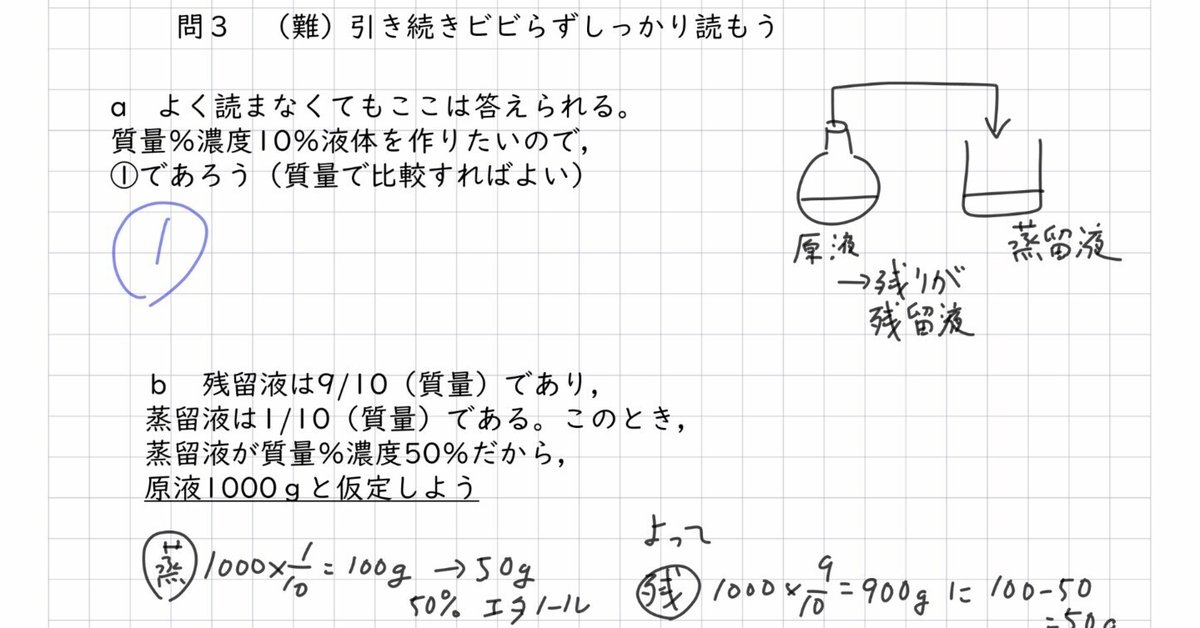 問3 （難）引き続きビビらずしっかり読もう
a よく読まなくてもここは答えられる。
質量%濃度10%液体を作りたいので，
①であろう（質量で比較すればよい）
1
原液
→残りが
残留液
蒸留液
b 残留液は9/10（質量）であり，
蒸留液は1/10（質量）である。このとき，
蒸留液が質量%濃度50%だから，
原液1000gと仮定しよう
蒸 1000×1/10=100g →50g
50% エタノール
よって
残 1000×9/10=900gに 100-50
=50g